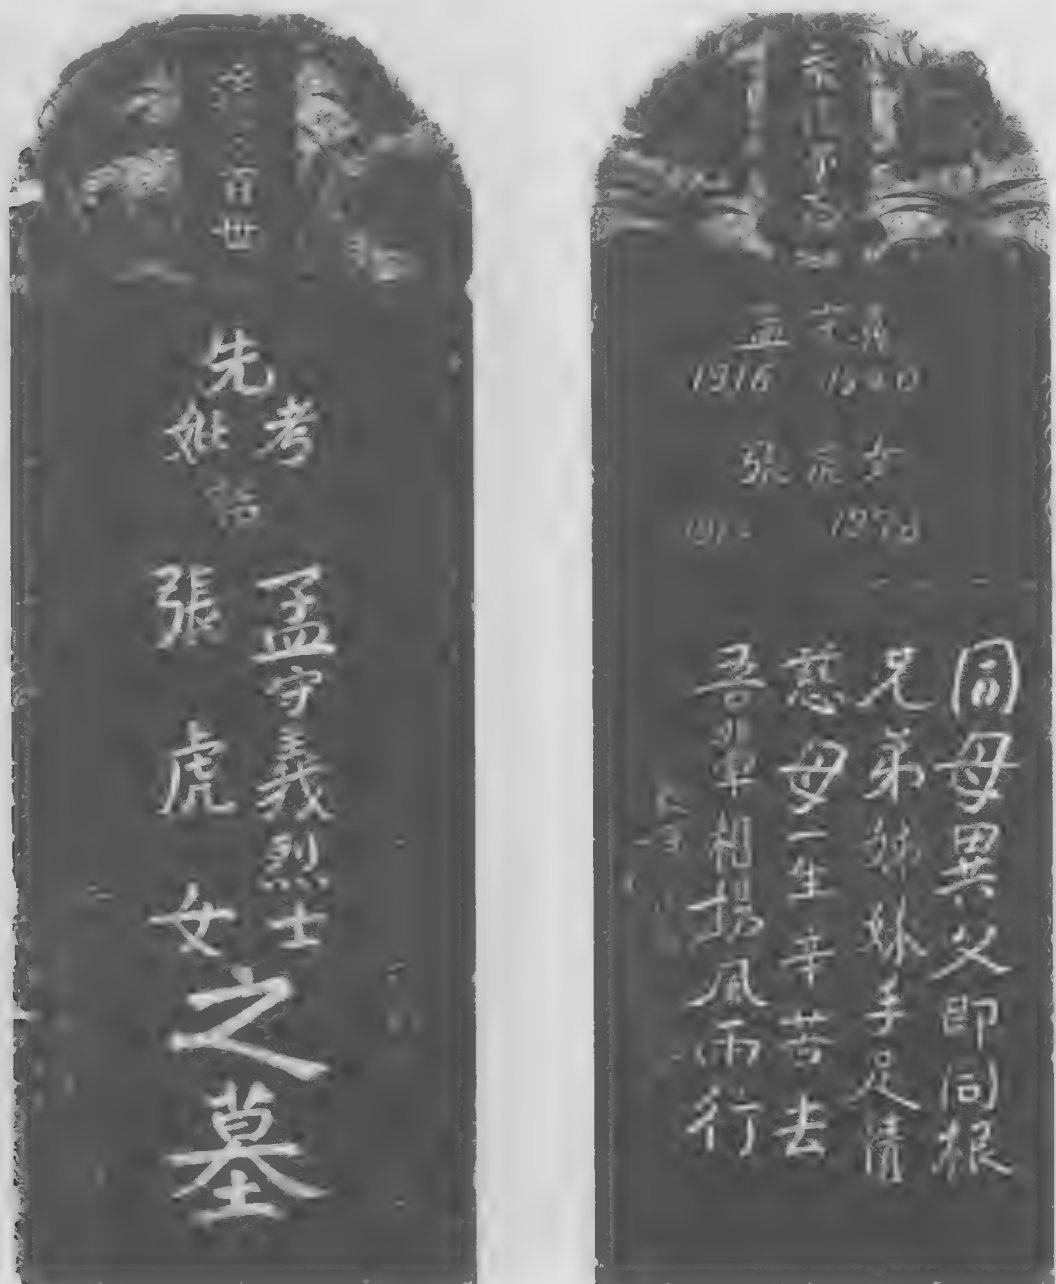 百世
先
考
妣
孟守義烈士
張虎女
之墓
孟守義
1916 1940
張虎女
同母異父即同根
兄弟姊妹手足情
慈母一生辛苦去
吾輩相揚風雨行